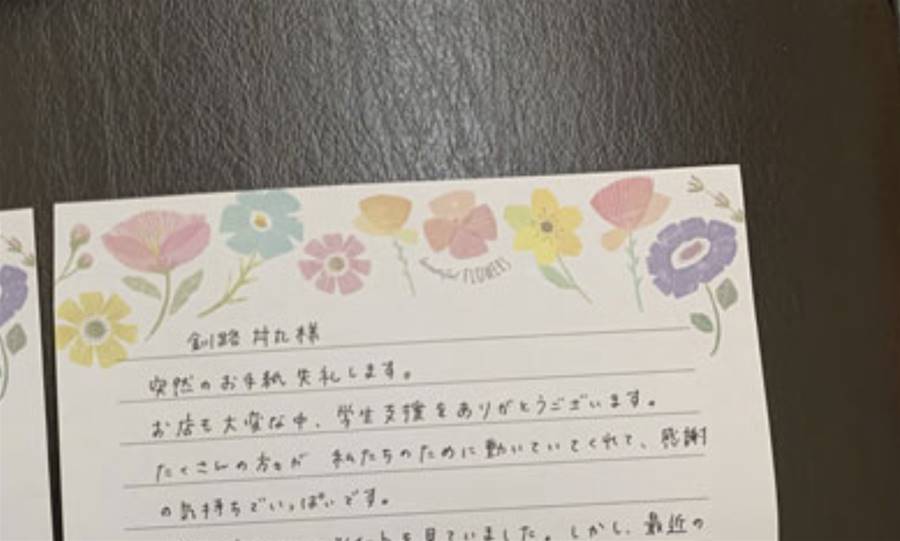 beautiful FLOWERS
釧路 様
突然のお手紙失礼します。
お店も大変な中、学生支援をありがとうございます。
たくさんの方々が 私たちのために動いていてくれて、感謝
の気持ちでいっぱいです。
を見ていました。しかし、最近の